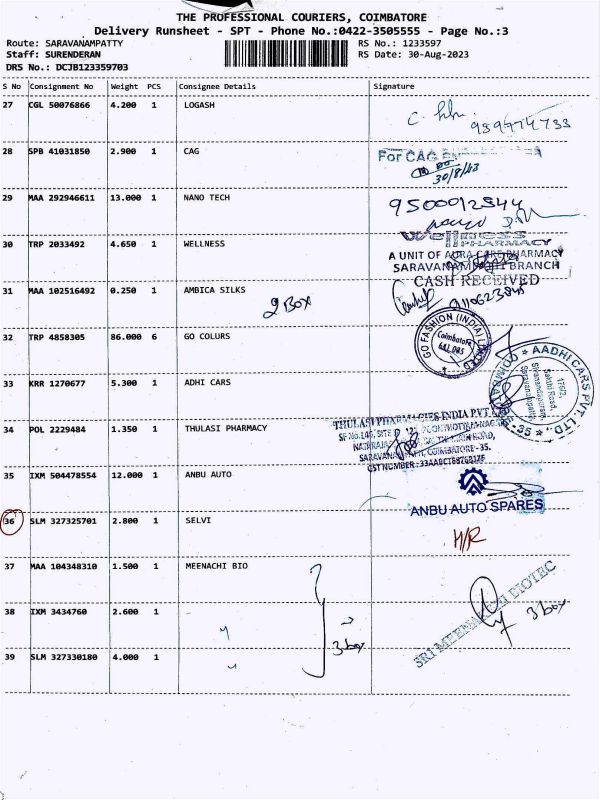 THE PROFESSIONAL COURIERS, COIMBATORE
Delivery Runsheet - SPT - Phone No.:0422-3505555 - Page No.:3
Route: SARAVANAMPATTY RS No.: 1233597
Staff: SURENDERAN RS Date: 30-Aug-2023
DRS No.: DCJB123359703
S No Consignment No Weight PCS Consignee Details Signature
27 CGL 50076866 4.200 1 LOGASH
28 SPB 41031850 2.900 1 CAG
For CAG
30/8/23
29 MAA 292946611 13.000 1 NANO TECH
9500012544
30 TRP 2033492 4.650 1 WELLNESS
Wellness
PHARMACY
A UNIT OF AURA CARE PHARMACY
SARAVANAMPATTI BRANCH
CASH RECEIVED
31 MAA 102516492 0.250 1 AMBICA SILKS
2 Box
32 TRP 4858305 86.000 6 GO COLURS
GO FASHION (INDIA) LIMITED
Coimbatore
641 035
33 KRR 1270677 5.300 1 ADHI CARS
AADHI CARS PVT. LTD.
COIMBATORE - 35
176/2,
Sakthi Road,
Sivanandapuram,
Saravanampatti
34 POL 2229484 1.350 1 THULASI PHARMACY
THULASI PHARMACIES INDIA PVT LTD
SARAVANAMPATTI, COIMBATORE - 35.
35 IXM 504478554 12.000 1 ANBU AUTO
ANBU AUTO SPARES
36 SLM 327325701 2.800 1 SELVI
H/R
37 MAA 104348310 1.500 1 MEENACHI BIO
SRI MEENAKSHI BIOTEC
38 IXM 3434760 2.600 1
3 box
3 box
39 SLM 327330180 4.000 1